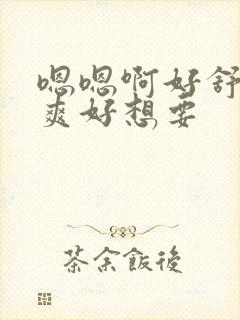 嗯嗯啊好舒
爽好想要
茶余飯後